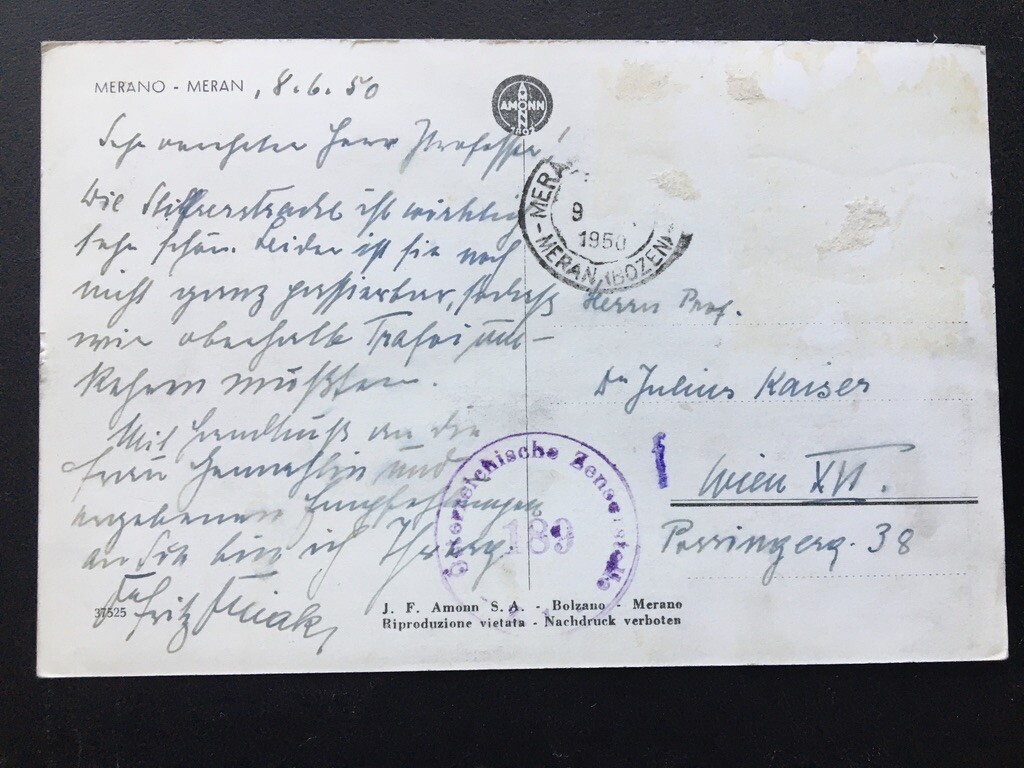 MERANO - MERAN, 8.6.50
AMONN
Sehr verehrter Herr Professor!
Die Stilfserstraße ist wirklich
sehr schön. Leider ist sie noch
nicht ganz passierbar, sodaß
wir oberhalb Trafoi um-
kehren mußten.
Mit Handkuß an die
Frau Gemahlin und
ergebenen Empfehlungen
an Sie bin ich Ihr
Fritz
MERA
9
1950
- MERAN (BOZEN) -
Herrn Prof.
Dr Julius Kaiser
Wien XVI.
Österreichische Zensurstelle
189
37525
J. F. Amonn S. A. - Bolzano - Merano
Riproduzione vietata - Nachdruck verboten